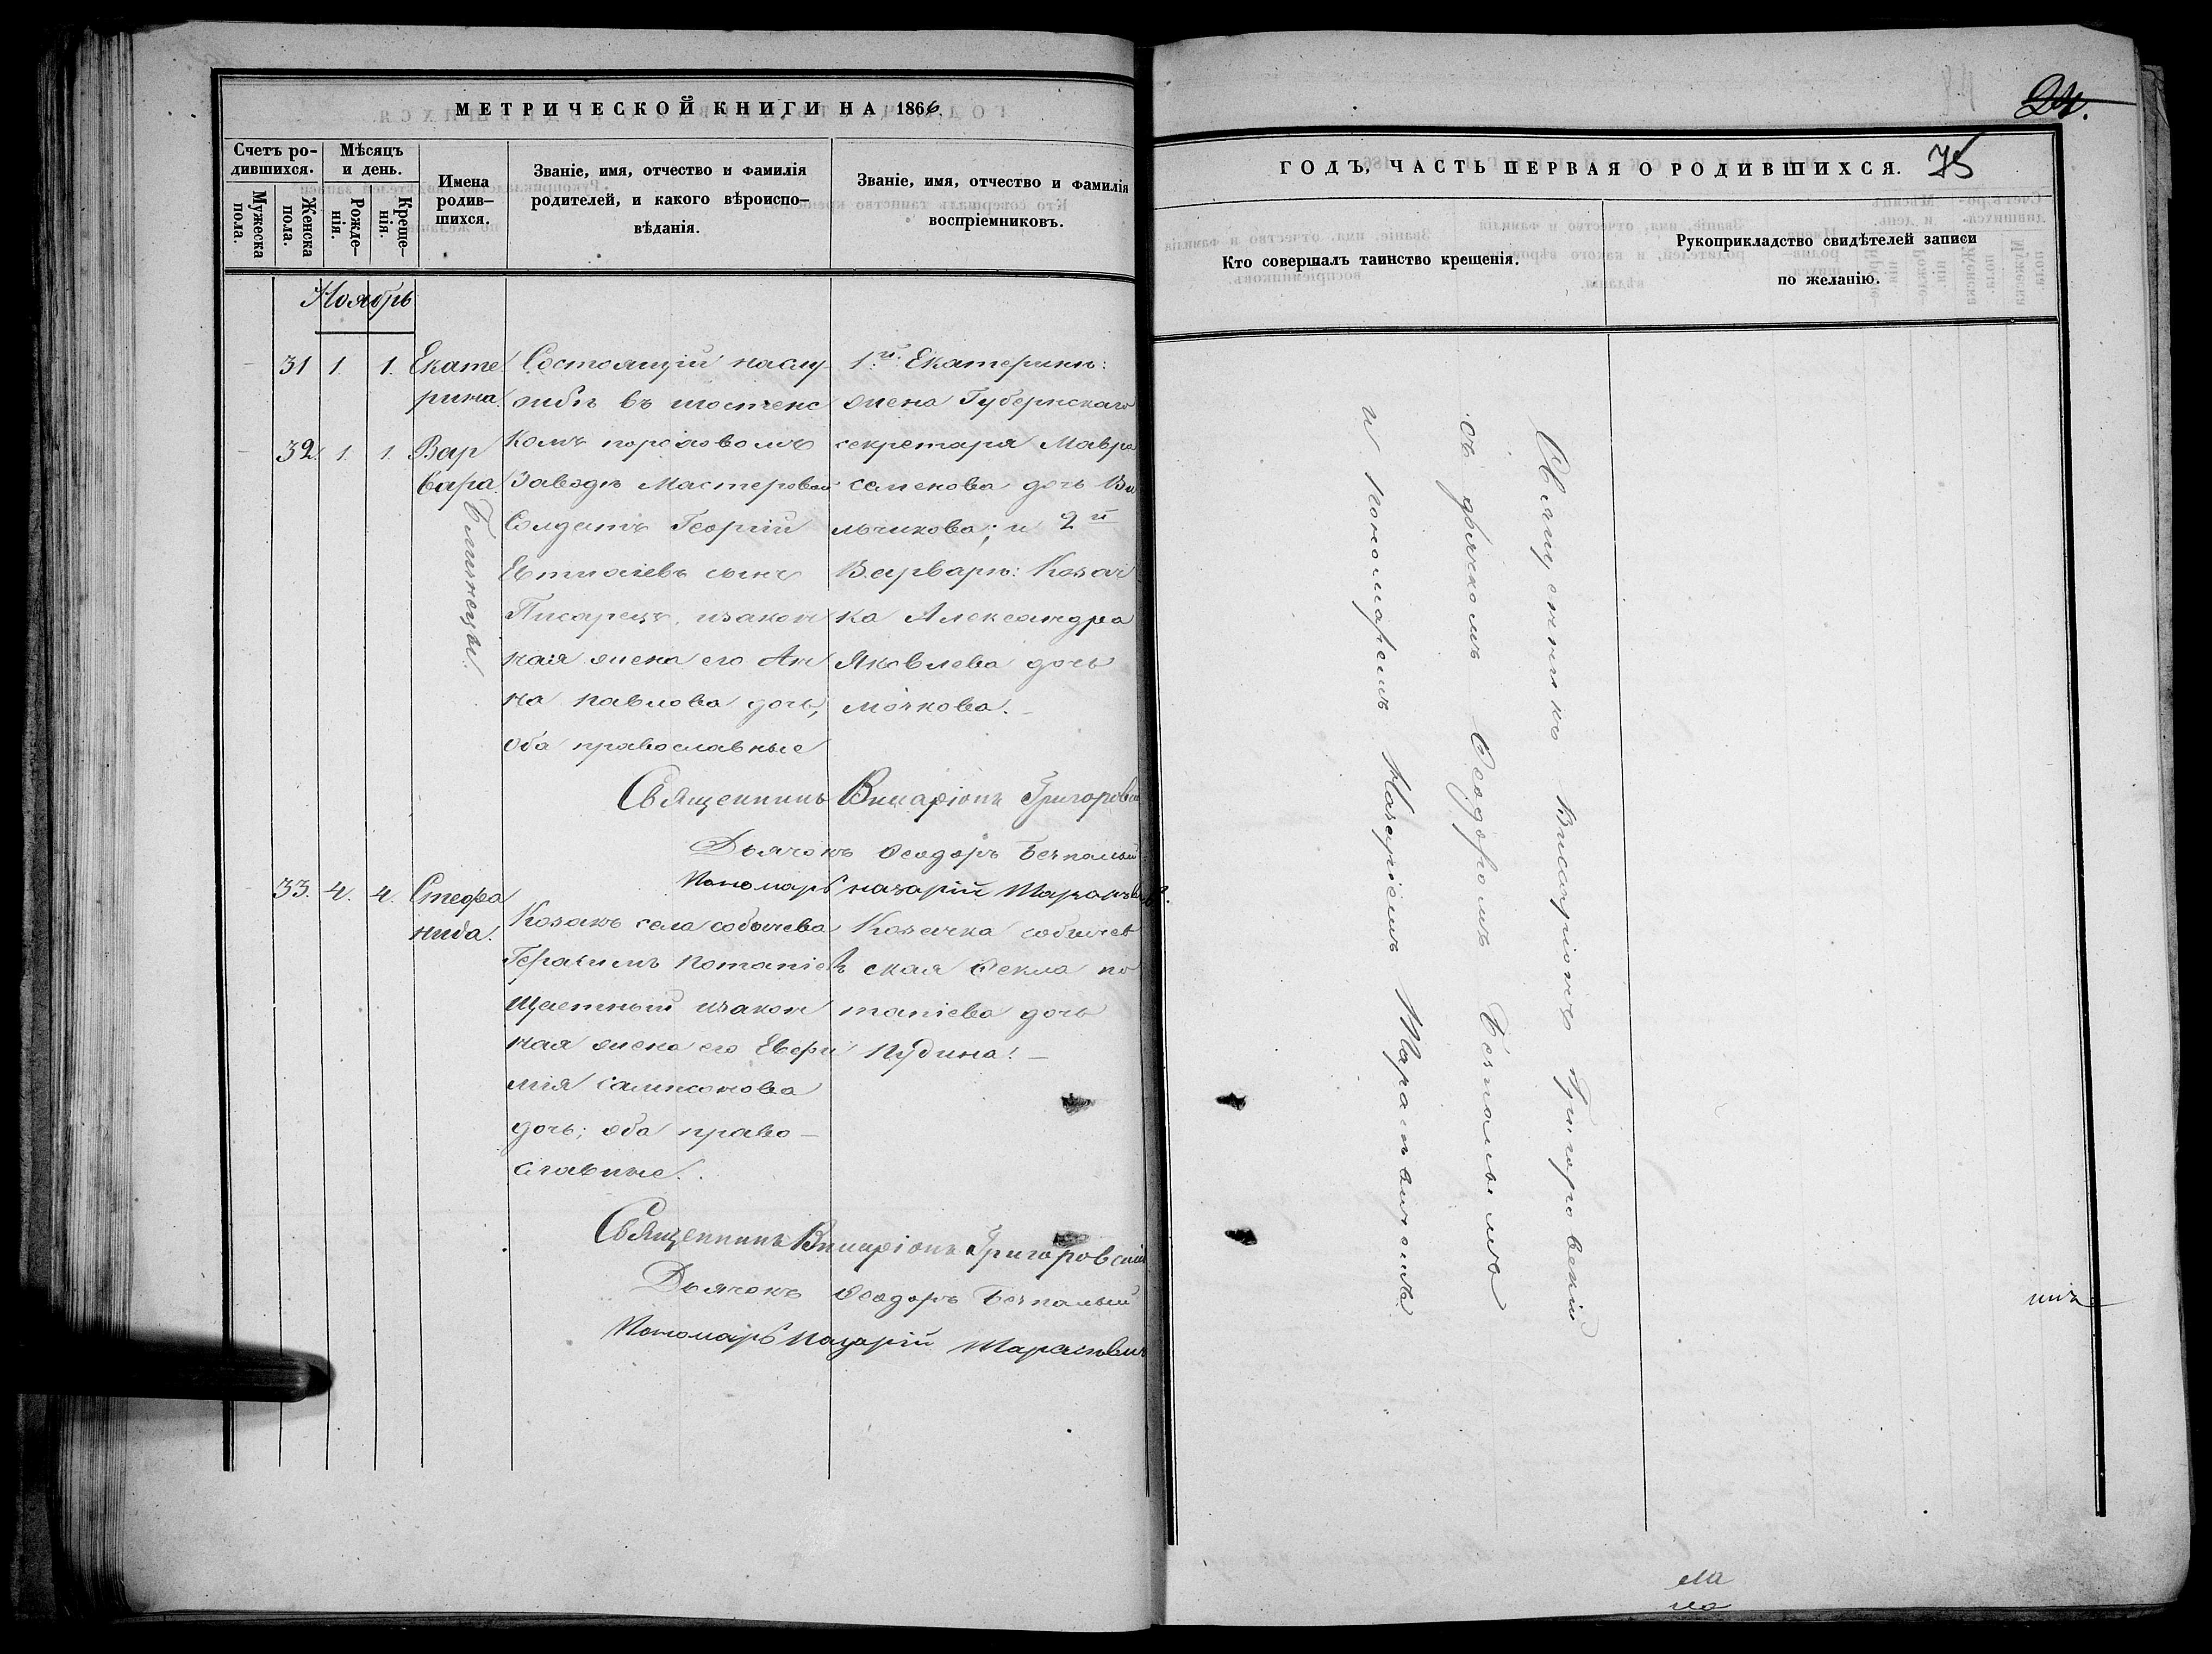 МЕТРИЧЕСКОЙ КНИГИ НА 1866.
Счетъ родившихся.
Мѣсяцъ и день.
Мужеска пола.
Женска пола.
Рожденія.
Крещенія.
Имена родив–
шихся.
Званіе, имя, отчество и фамилія
родителей, и какого вѣроиспо–
вѣданія.
Званіе, имя, отчество и фамилія
воспріемниковъ.
Ноябрь
31 1. 1. Екате
рина.
32. 1. 1. Вар
вара.
Близнецы.
Состоящій на слу
жбѣ въ шостенс
комъ пороховомъ
Заводѣ Мастеровой
Солдатъ Георгій
Евтихіевъ сынъ
Писарецъ, изакон
ная жена его Ан
на Павлова дочь,
оба православные
1.й Екатеринѣ:
жена Губернскаго
секретаря Мавра
Семенова дочь
льчикова; и 2й
Варварѣ: Козач
ка Александра
Яковлева дочь
Мочкова.
Священникъ Висаріонъ Григоровс
Дьячокъ Ѳеодоръ Безпалый
Пономарь Назарій Тарасевичъ.
33. 4. 4. Стефа
нида.
Козакъ села Собычева
Герасимъ Потапіевъ
изакон
ная жена его Евфи
мія Сампсонова
дочь; оба право–
славные.
Козачка собычев
ская Ѳекла По
тапіева дочь
Пудина.
Священникъ Висаріонъ Григоровскій
Дьячокъ Ѳеодоръ Безпалый
Пономарь Назарій Тарасевич
24.
ГОДЪ, ЧАСТЬ ПЕРВАЯ О РОДИВШИХСЯ. 75
Кто совершалъ таинство крещенія.
Рукоприкладство свидѣтелей записи
по желанію.
Священникъ Висаріонъ Григоровскій
съ дьячкомъ Ѳеодоромъ Безпалымъ
и Пономаремъ Назаріемъ Тарасевичемъ.